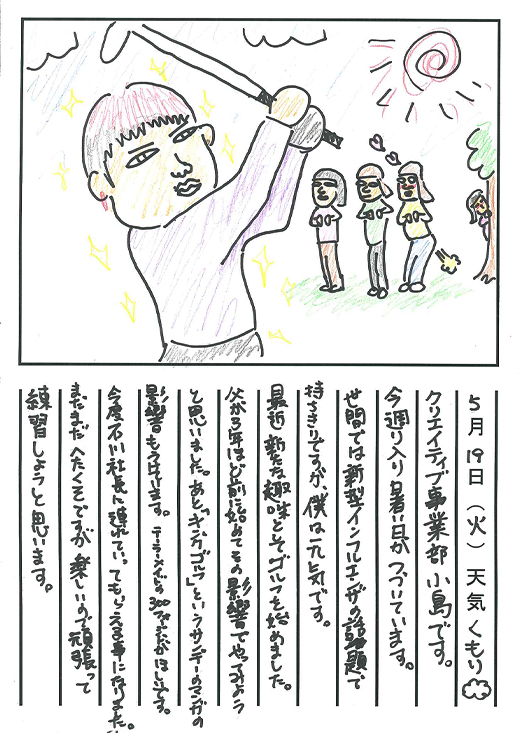 5月19日(火)天気くもり
クリエイティブ事業部小島です。
今週り入り暑い日がつづいています。
世間では新型インフルエンザの話題で
持ちきりですが、僕は元気です。
最近新たな趣味としてゴルフを始めました。
父が3年ほど前に始めてその影響でやってみよう
と思いました。あと「キンガゴルフ」というサンデーのマンガの
影響もうけています。テーラーメイドの300がほしいです。
今度石川社長に連れていってもらえる事になりました。
まだまだへたくそですが楽しいので頑張って
練習しようと思います。